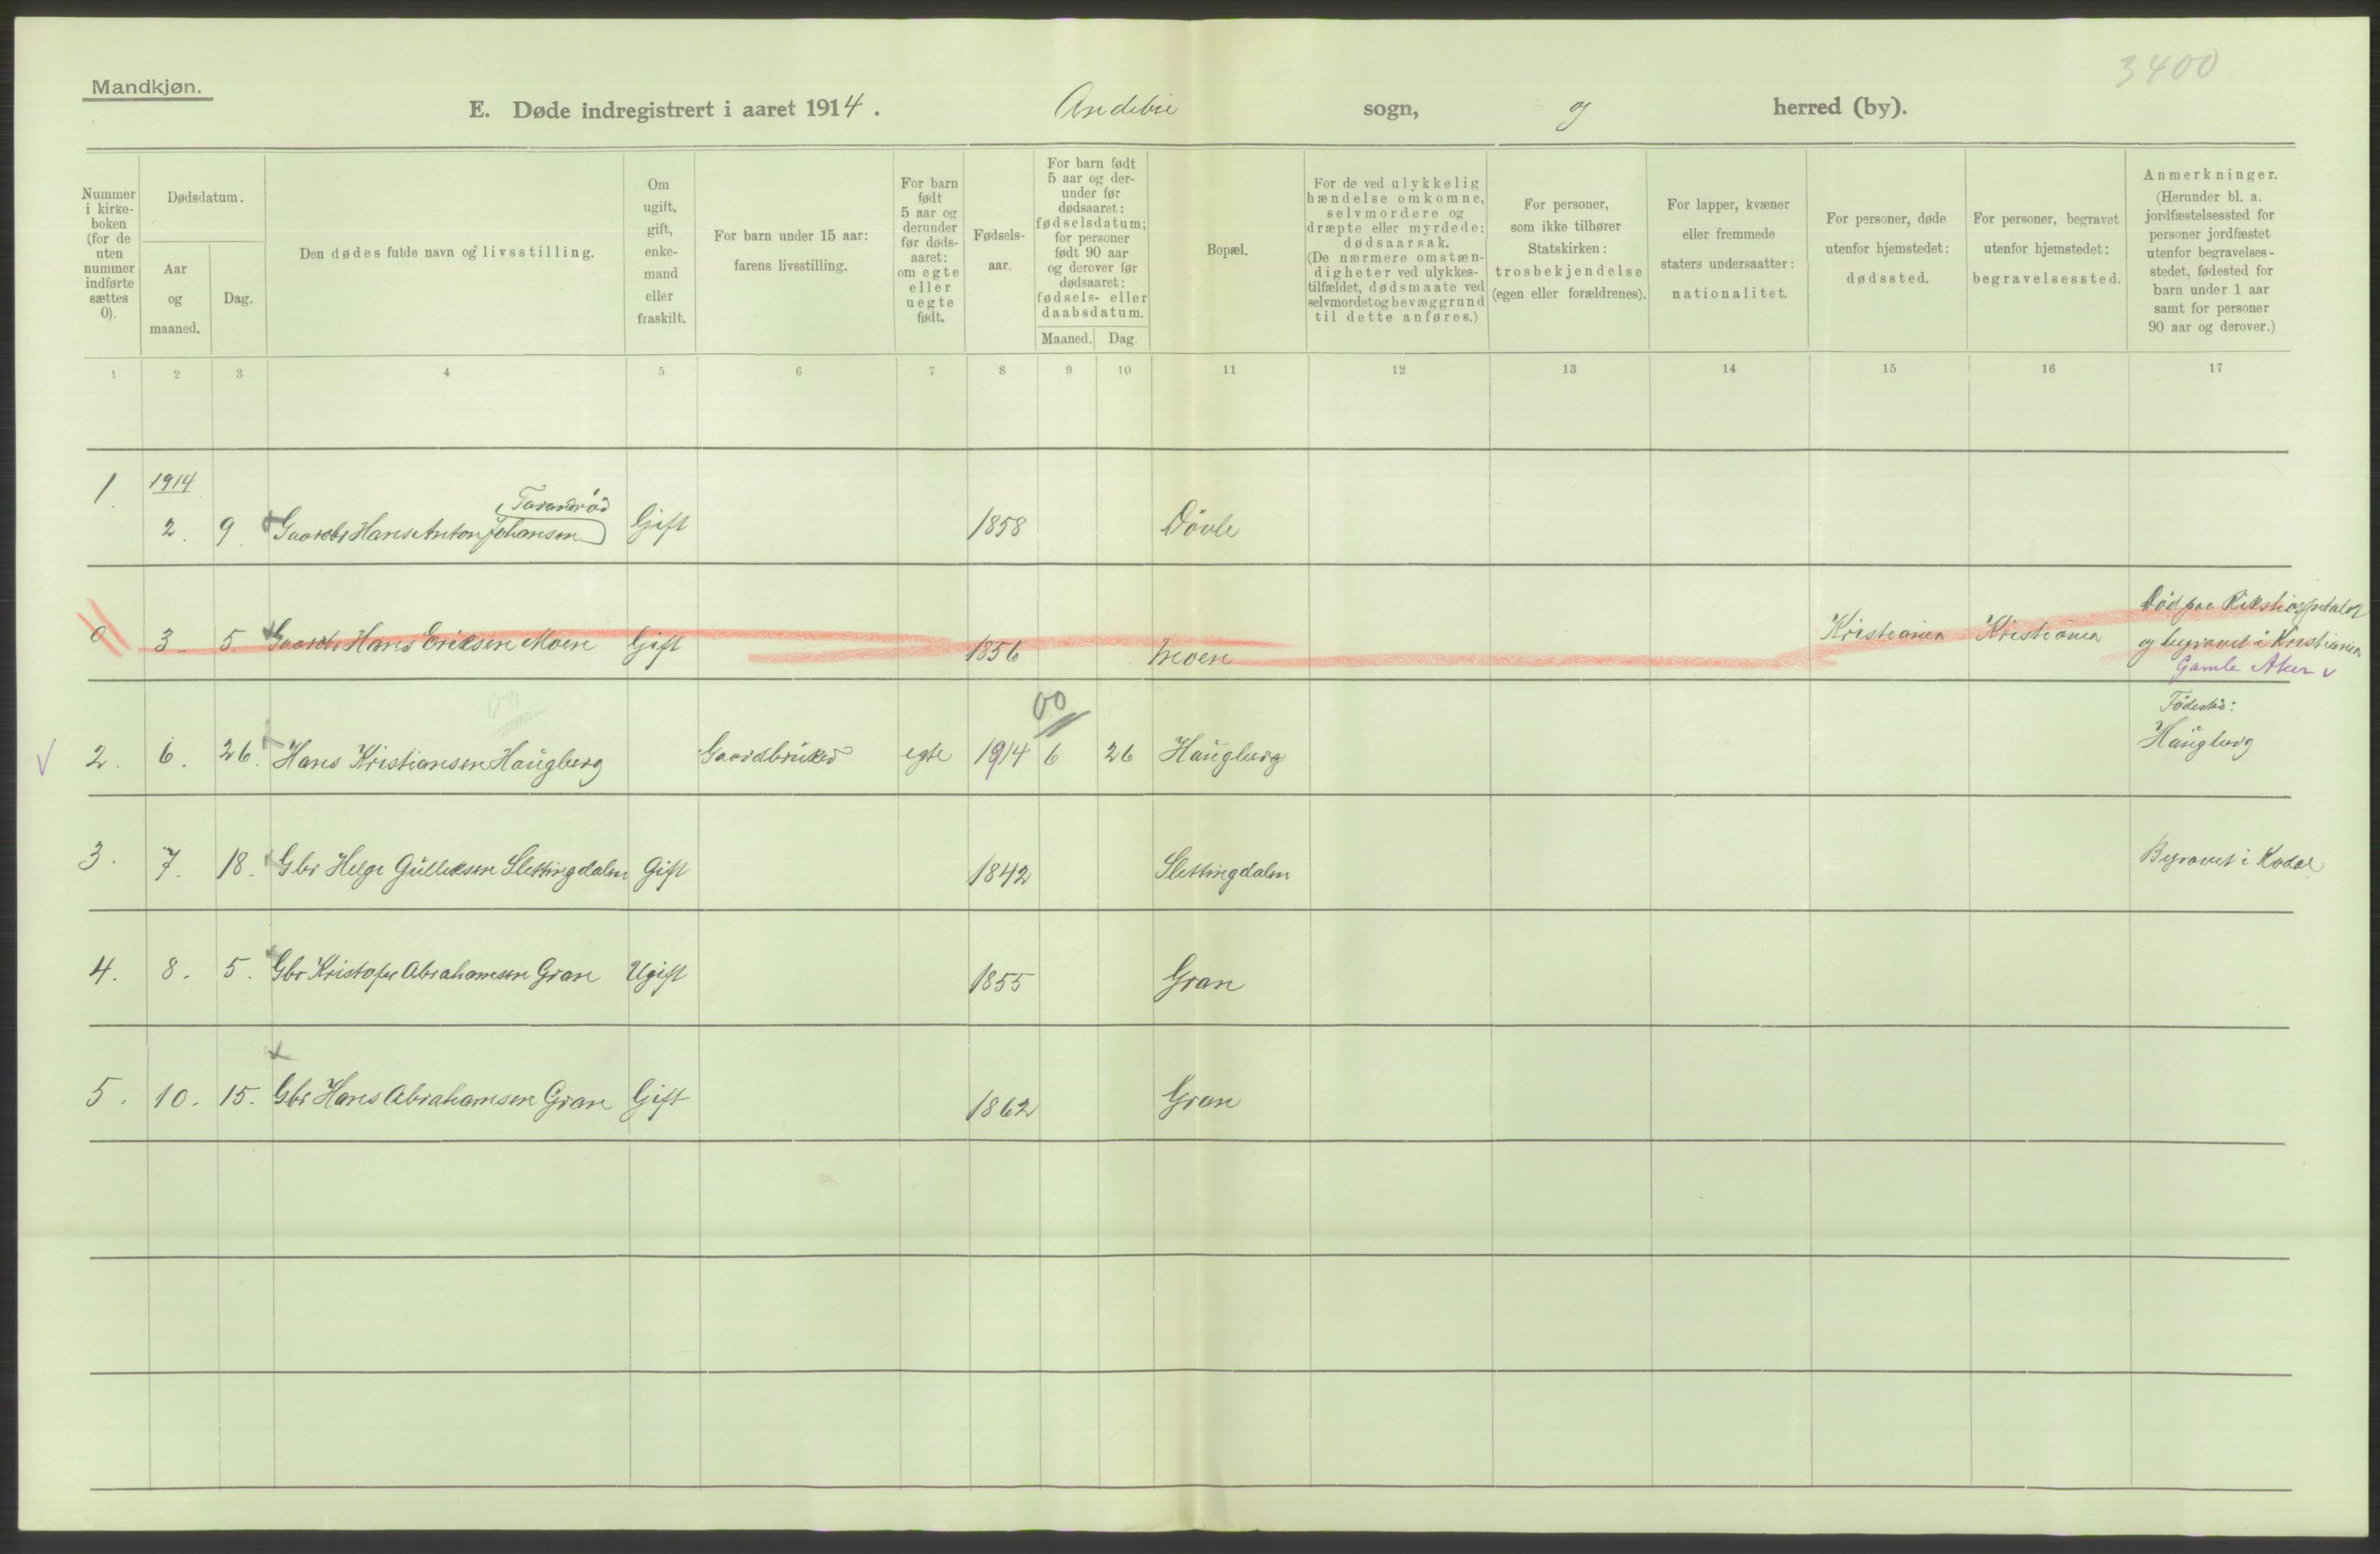 3400
Mandkjøn.
E. Døde indregistrert i aaret 1914. Andebu sogn, og herred (by).
Nummer i kirke-boken (for de uten nummer indførte sættes 0).
Dødsdatum.
Aar og maaned.
Dag.
Den dødes fulde navn og livsstilling.
Om ugift, gift, enke-mand eller fraskilt.
For barn under 15 aar: farens livsstilling.
For barn født 5 aar og derunder før døds-aaret: om egte eller uegte født.
Fødsels-aar.
For barn født 5 aar og der-under før dødsaaret: fødselsdatum; for personer født 90 aar og derover før dødsaaret: fødsels- eller daabsdatum.
Maaned. Dag.
Bopæl.
For de ved ulykkelig hændelse omkomne, selvmordere og dræpte eller myrdede: dødsaarsak. (De nærmere omstæn-digheter ved ulykkes-tilfældet, dødsmaate ved selvmordet og bevæggrund til dette anføres.)
For personer, som ikke tilhører Statskirken: trosbekjendelse (egen eller forældrenes).
For lapper, kvæner eller fremmede staters undersaatter: nationalitet.
For personer, døde utenfor hjemstedet: dødssted.
For personer, begravet utenfor hjemstedet: begravelsessted.
Anmerkninger. (Herunder bl. a. jordfæstelsessted for personer jordfæstet utenfor begravelses-stedet, fødested for barn under 1 aar samt for personer 90 aar og derover.)
1 2 3 4 5 6 7 8 9 10 11 12 13 14 15 16 17
1914
1. 2. 9. Gaardbr Hans Anton Johansen Gift 1858
0 3 5 Gaardbr Hans Eriksen Moen Gift 1856 Moen Kristiania Kristiania Død paa Rikshospitalet
og begravet i Kristiania
Gamle Aker v
00 Fødested:
2. 6. 26. Hans Kristiansen Haugberg Gaardbruker egte 1914 6 26 Haugberg Haugberg
3. 7. 18. Gbr Helge Gulleksen Slettingdalen Gift 1842 Slettingdalen Begravet i Kodal
4. 8. 5. Gbr Kristofer Abrahamsen Gran Ugift 1855 Gran
5. 10. 15. Gbr Hans Abrahamsen Gran Gift 1862 Gran